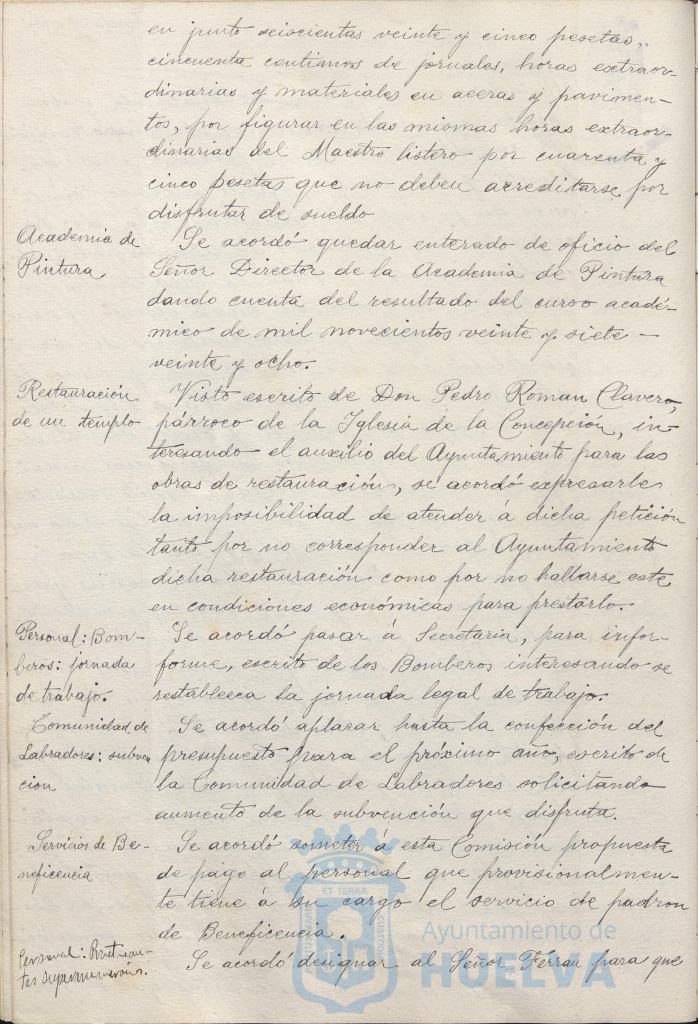 en junto seiscientas veinte y cinco pesetas,,
cincuenta centimos de jornales, horas extraor-
dinarias y materiales en aceras y pavimen-
tos, por figurar en las mismas horas extraor-
dinarias del Maestro listero por cuarenta y
cinco pesetas que no deben acreditarse por
disfrutar de sueldo
Academia de
Pintura
Se acordó quedar enterado de oficio del
Señor Director de la Academia de Pintura
dando cuenta del resultado del curso acadé-
mico de mil novecientos veinte y siete-
veinte y ocho.
Restauración
de un templo
Visto escrito de Don Pedro Roman Clavero,
párroco de la Iglesia de la Concepción, in-
teresando el auxilio del Ayuntamiento para las
obras de restauración, se acordó expresarle
la imposibilidad de atender á dicha petición
tanto por no corresponder al Ayuntamiento
dicha restauración como por no hallarse este
en condiciones económicas para prestarlo.
Personal: Bom-
beros: jornada
de trabajo.
Se acordó pasar á Secretaria, para infor-
forme, escrito de los Bomberos interesando se
restableeca la jornada legal de trabajo.
Comunidad de
Labradores: subven
cion
Se acordó aplazar hasta la confección del
presupuesto para el próximo año, escrito de
la Comunidad de Labradores solicitando
aumento de la subvención que disfruta.
Servicios de Be-
neficencia
Se acordó someter á esta Comisión propuesta
de pago al personal que provisionalmen-
te tiene á su cargo el servicio de padron
de Beneficencia.
Personal:
Se acordó designar al Señor Ferrau para que
Ayuntamiento de
HUELVA